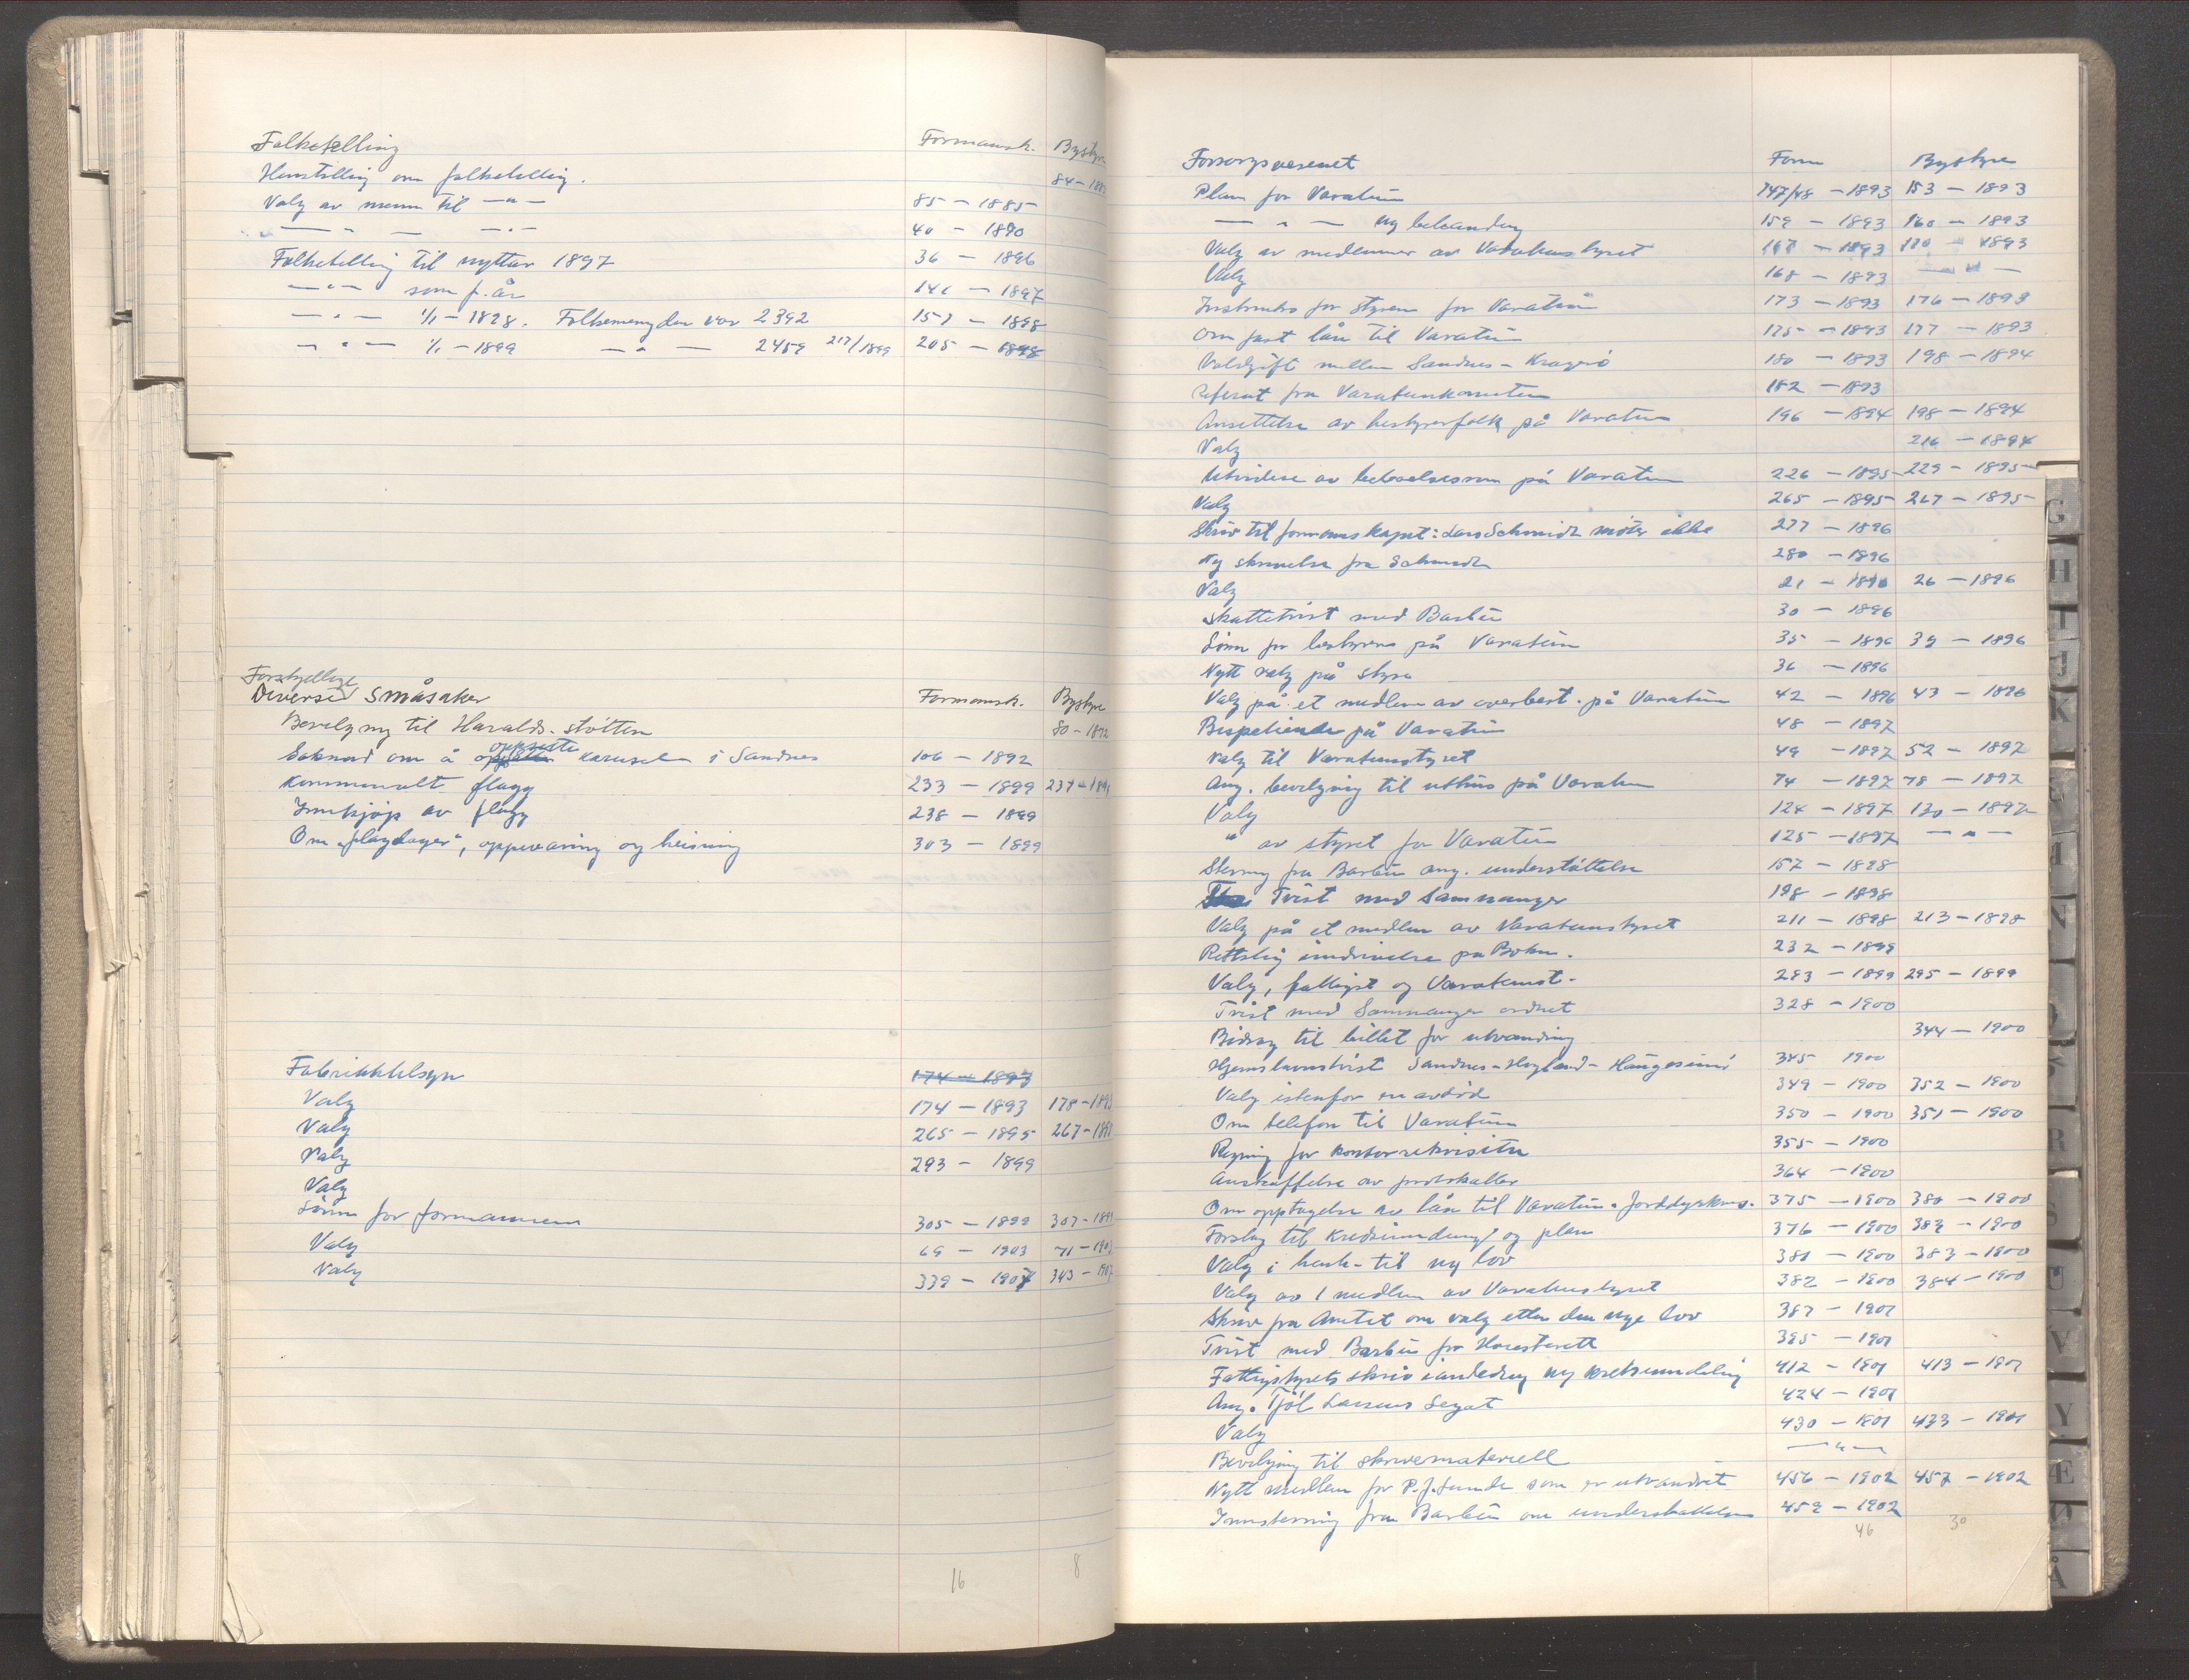 Folketelling Formannsk. Bystyre
Henstilling om folketelling. 84 - 1885
Valg av menn til — " — 85 - 1885
— " — — " — 40 - 1890
Folketelling til nyttår 1897 36 - 1896
— " — som f. år 141 - 1897
— " — 1/1 - 1898. Folkemengden var 2392 157 - 1898
— " — 1/1 - 1899 — " — 2459 217/1899 205 - 1898
Forskjellige
Diverse småsaker Formannsk. Bystyre
Bevilgning til Haralds-støtten 80 - 1872
Søknad om å oppsette karusel i Sandnes 106 - 1892
Kommunalt flagg 233 - 1899 237 - 1899
Innkjøp av flagg 238 - 1899
Om "flagdager", oppevaring og heisning 303 - 1899
Fabrikktilsyn 174 - 1893
Valg 174 - 1893 178 - 1893
Valg 265 - 1895 267 - 1895
Valg 293 - 1899
Valg
Lønn for formannen 305 - 1899 307 - 1899
Valg 69 - 1903 71 - 1903
Valg 339 - 1907 343 - 1907
16 8
Forsorgsvesenet Form Bystyre
Plan for Varatun 147/48 - 1893 153 - 1893
— " — ny behandling 159 - 1893 160 - 1893
Valg av medlemmer av Varatunstyret 167 - 1893 170 - 1893
Valg 168 - 1893 — " —
Instruks for styrer for Varatun 173 - 1893 176 - 1893
Om fast lån til Varatun 175 - 1893 177 - 1893
Voldgift mellem Sandnes - Kragerø 180 - 1893 198 - 1894
Referat fra Varatunkomiteen 182 - 1893
Ansettelse av bestyrerfolk på Varatun 196 - 1894 198 - 1894
Valg 216 - 1894
Utvidelse av beboelsesrom på Varatun 226 - 1895 229 - 1895
Valg 265 - 1895 267 - 1895
Skriv til formannskapet: Lars Schmidt møter ikke 277 - 1896
Ny skrivelse fra Schmidt 280 - 1896
Valg 21 - 1896 26 - 1896
Skattetvist med Barbu 30 - 1896
Lønn for bestyreren på Varatun 35 - 1896 39 - 1896
Nytt valg på styre 36 - 1896
Valg på et medlem av overbest. på Varatun 42 - 1896 43 - 1896
Bespeliende på Varatun 48 - 1897
Valg til Varatunstyret 49 - 1897 52 - 1897
Ang. bevilgning til uthus på Varatun 74 - 1897 78 - 1897
Valg 124 - 1897 130 - 1897
" av styret for Varatun 125 - 1897 — " —
Stevning fra Barbu ang. understøttelse 157 - 1898
Tvist med Samnanger 198 - 1898
Valg på et medlem av Varatunstyret 211 - 1898 213 - 1898
Rettslig inndrivelse på Bokn. 232 - 1899
Valg, fattigst og Varatunst. 293 - 1899 295 - 1899
Tvist med Samnanger ordnet 328 - 1900
Bidrag til billet for utvandring 344 - 1900
Hjemstavnstvist Sandnes - Høyland - Haugesund 345 1900
Valg istenfor en avdød 349 - 1900 352 - 1900
Om telefon til Varatun 350 - 1900 351 - 1900
Regning for kontorrekvisita 355 - 1900
Anskaffelse av protokoller 364 - 1900
Om opptagelse av lån til Varatun - Jorddyrkning. 375 - 1900 380 - 1900
Forslag til kredsinndeling og plan 376 - 1900 382 - 1900
Valg i henh. til ny lov 381 - 1900 383 - 1900
Valg av 1 medlem av Varatunstyret 382 - 1900 384 - 1900
Skriv fra Amtet om valg etter den nye lov 387 - 1901
Tvist med Barbu for Høiesterett 395 - 1901
Fattigstyrets skriv i anledning ny kretsinndeling 412 - 1901 413 - 1901
Ang. Tjøl Larsens Legat 424 - 1901
Valg 430 - 1901 433 - 1901
Bevilgning til skrivemateriell — " —
Nytt medlem for P. J. Lunde som er utvandret 456 - 1902 457 - 1902
Innstevning fra Barbu om understøttelse 459 - 1902
46 30
G
H
I
J
K
N
R
S
U
V
Y
Æ
Ø
Å